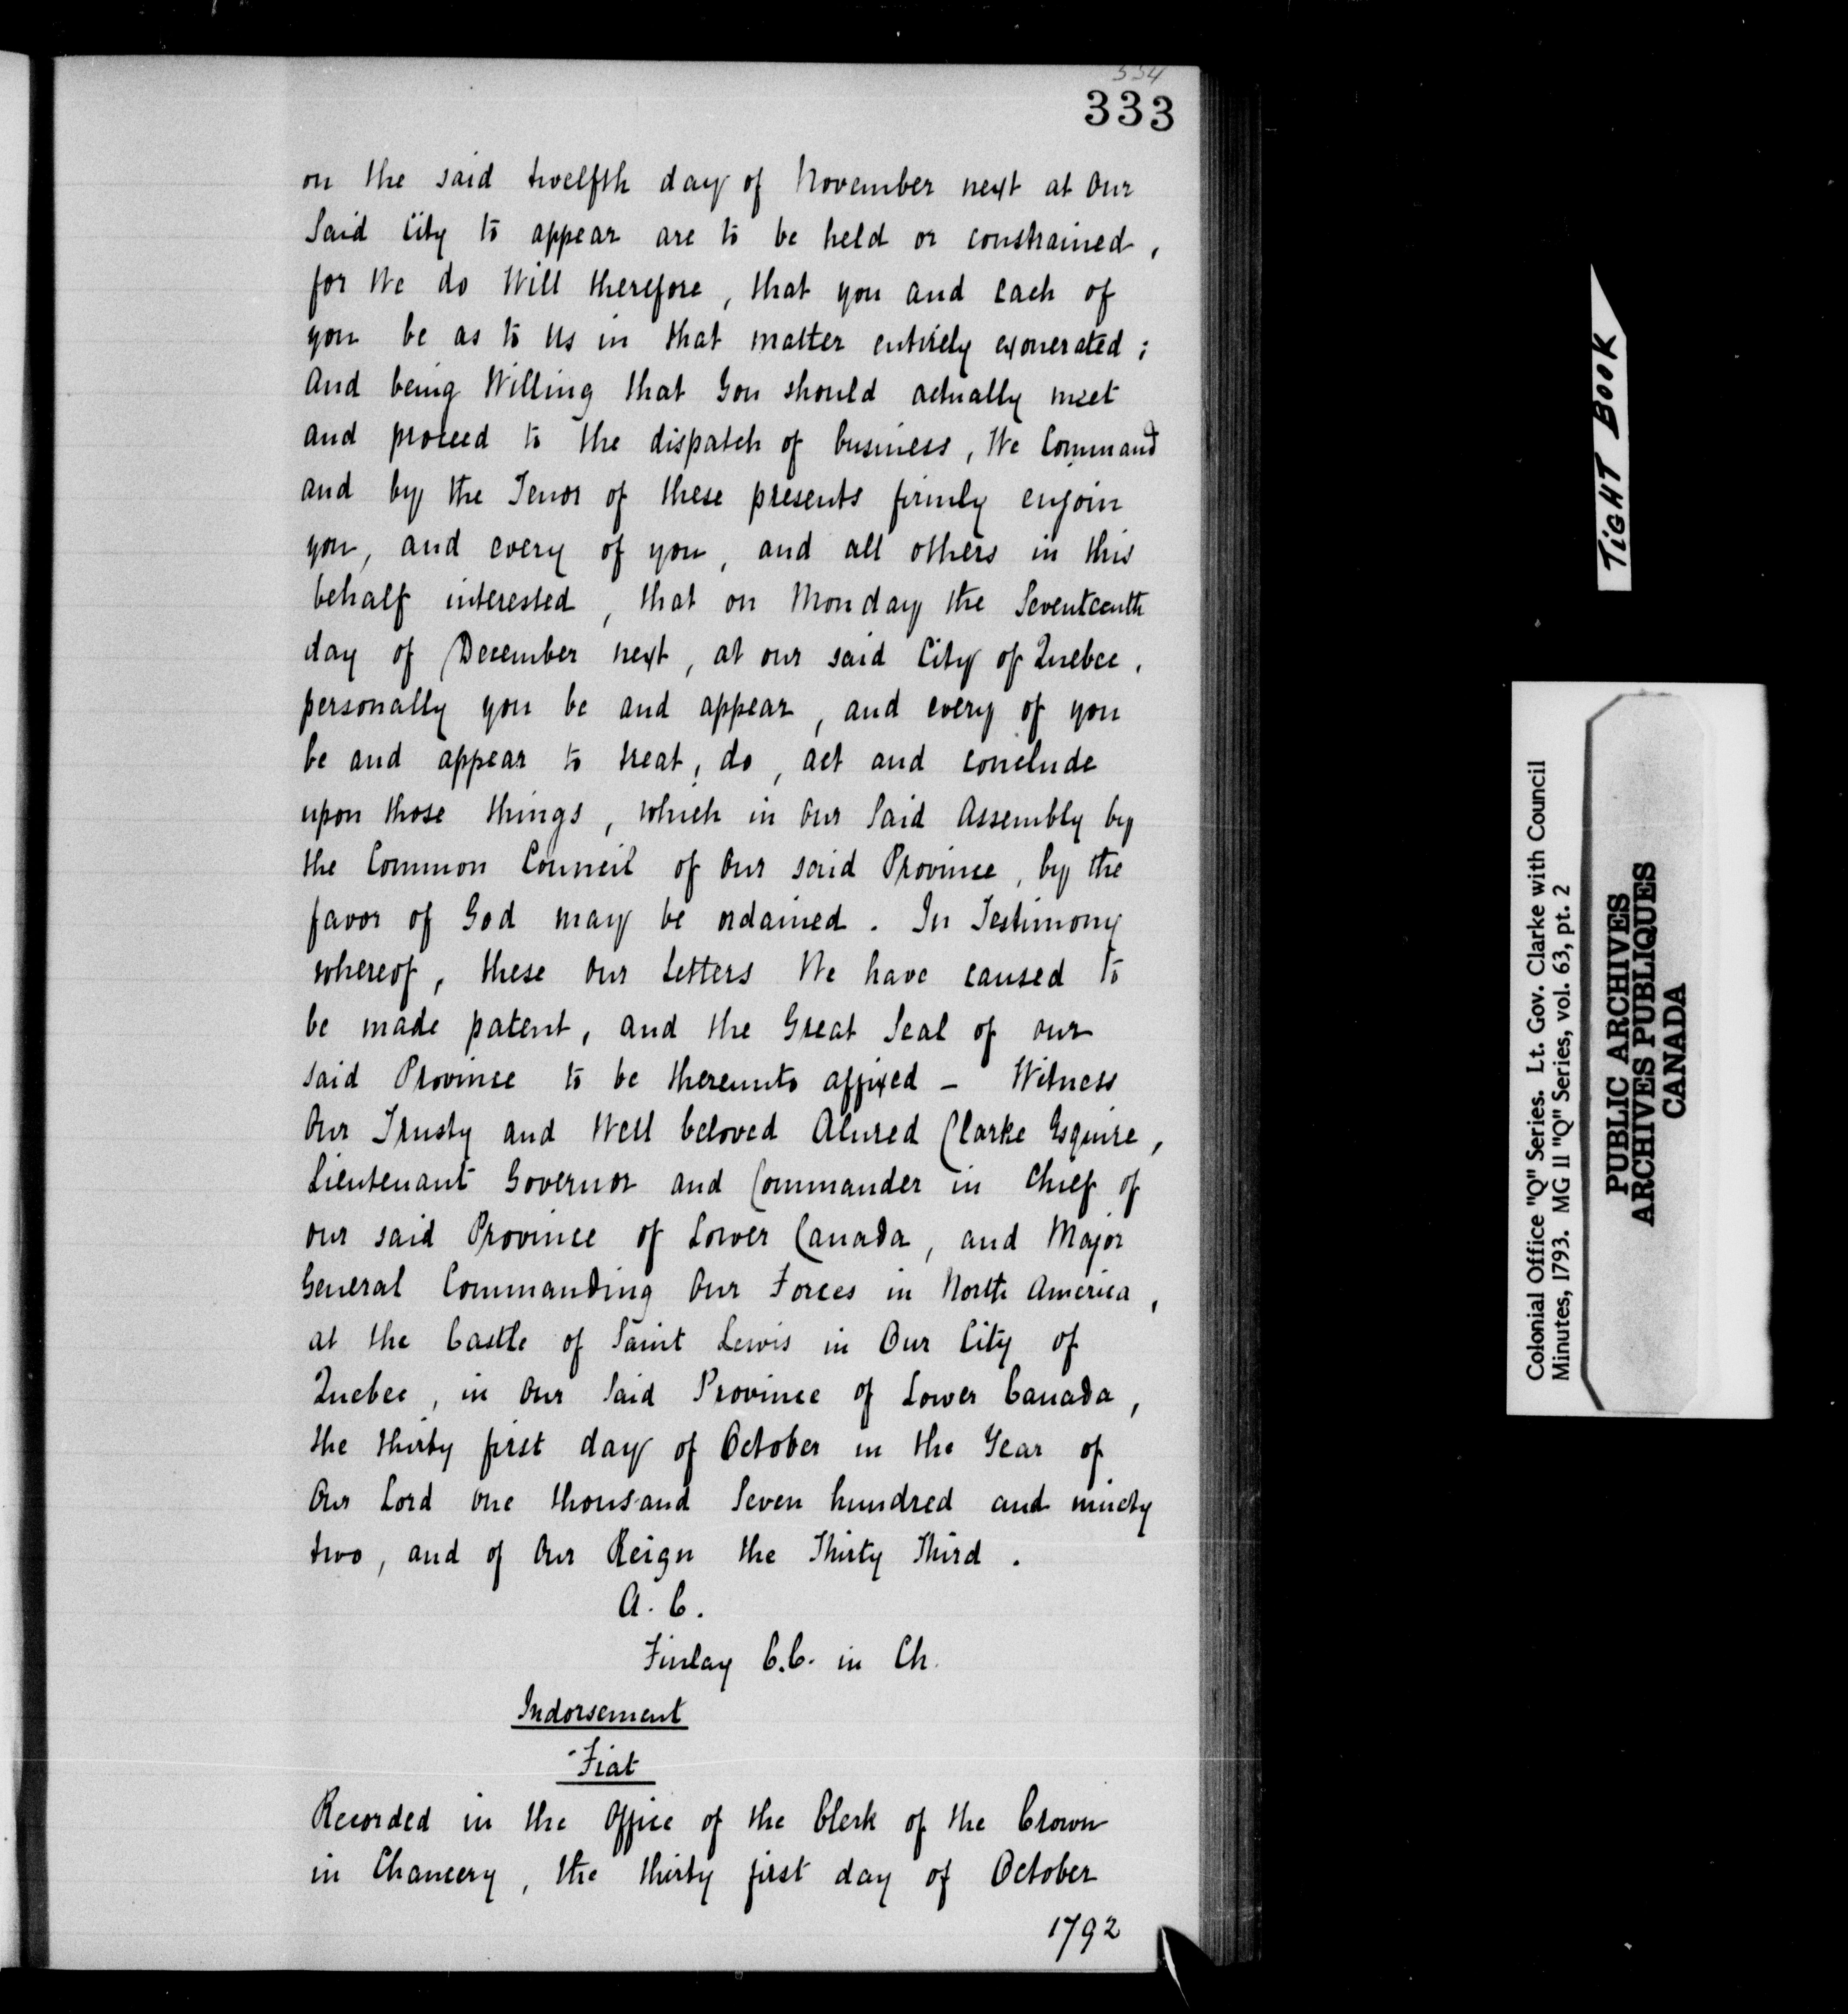 334
333
on the said twelfth day of November next at Our
Said City to appear are to be held or constrained,
for We do Will therefore, that you and each of
you be as to Us in that matter entirely exonerated;
And being Willing that You should actually meet
and proceed to the dispatch of business, We Command
and by the Tenor of these presents firmly enjoin
you, and every of you, and all others in this
behalf interested, that on Monday the Seventeenth
day of December next, at our said City of Quebec,
personally you be and appear, and every of you
be and appear to treat, do, act and conclude
upon those things, which in Our Said Assembly by
the Common Council of Our said Province, by the
favor of God may be ordained. In Testimony
whereof, these Our Letters We have caused to
be made patent, and the Great Seal of our
said Province to be thereunto affixed - Witness
Our Trusty and Well beloved Alured Clarke Esquire,
Lieutenant Governor and Commander in Chief of
our said Province of Lower Canada, and Major
General Commanding Our Forces in North America,
at the Castle of Saint Lewis in Our City of
Quebec, in Our Said Province of Lower Canada,
the thirty first day of October in the Year of
Our Lord One thousand Seven hundred and ninety
two, and of Our Reign the Thirty Third.
A. C.
Finlay C.C. in Ch.
Indorsement
Fiat
Recorded in the Office of the Clerk of the Crown
in Chancery, the thirty first day of October
1792
TIGHT BOOK
Colonial Office "Q" Series. Lt. Gov. Clarke with Council
Minutes, 1793. MG 11 "Q" Series, vol. 63, pt. 2
PUBLIC ARCHIVES
ARCHIVES PUBLIQUES
CANADA